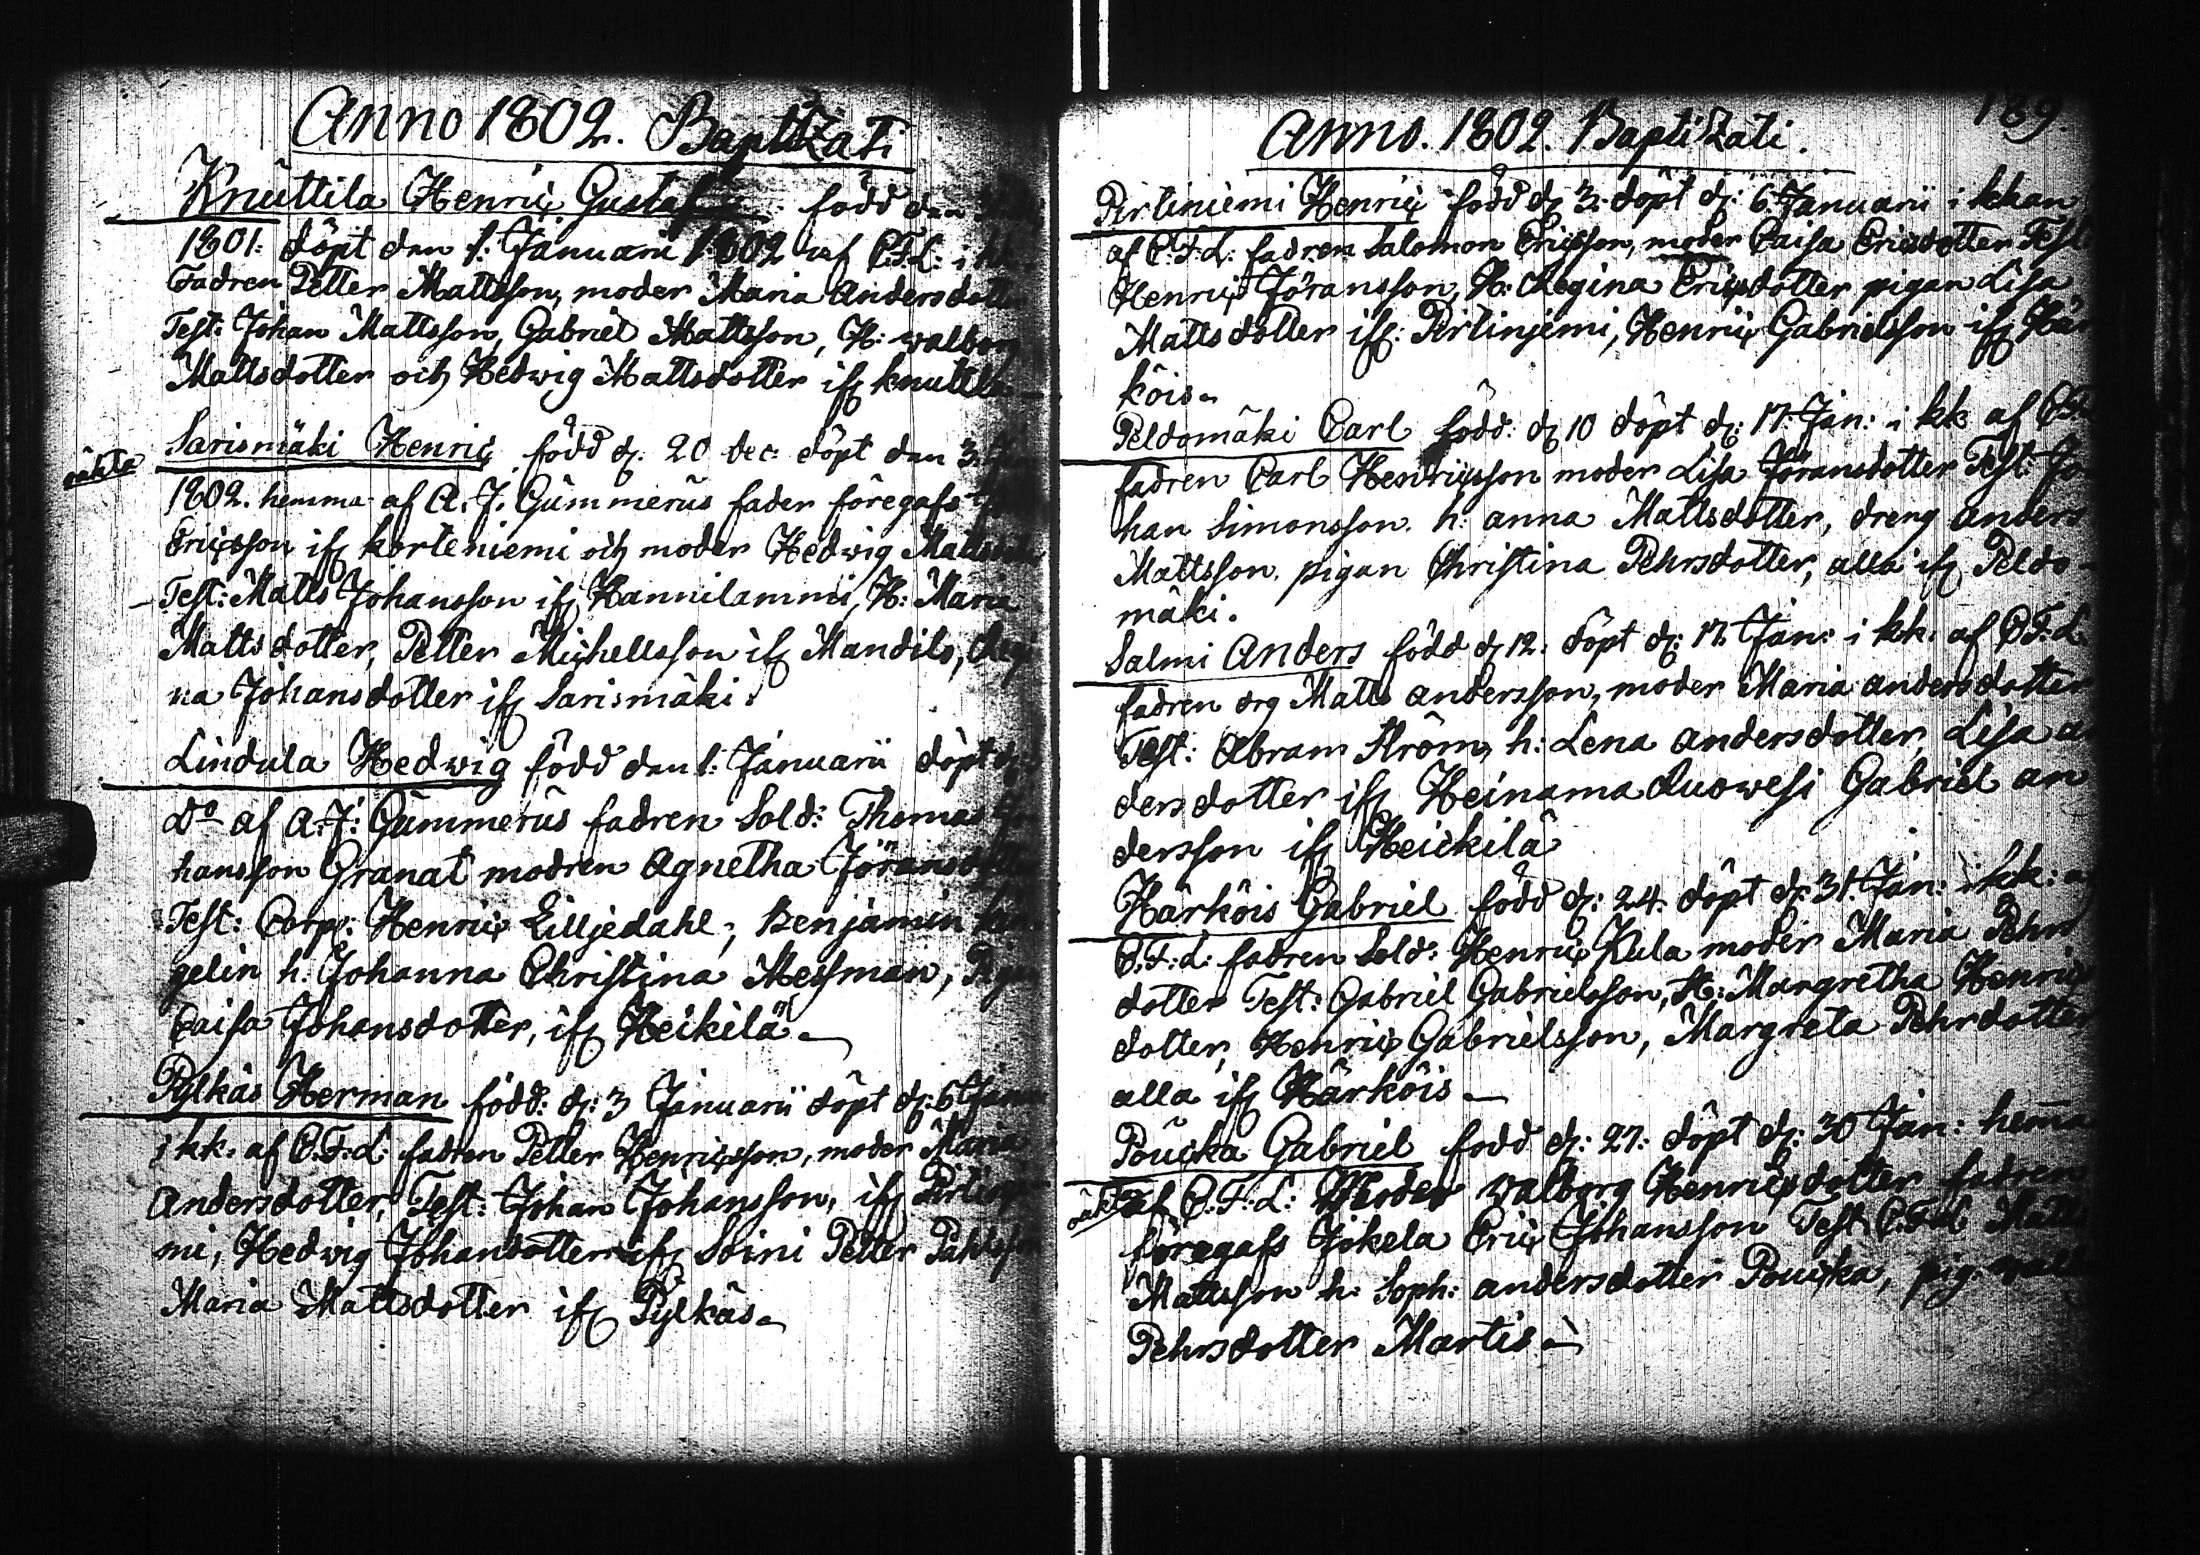 Anno 1802. Baptizati
Knuttila Henric Gustaf född den
1801. döpt den 1. Januarii 1802 af C.F.L. i kk
Fadren Petter Mattsson, moder Maria Andersdotter
Test: Johan Mattsson, Gabriel Mattsson, H: Walborg
Mattsdotter och Hedwig Mattsdotter if: Knuttila
oäkta
Sarismäki Henric född d. 20 Dec: döpt den 3.
1802. hemma af A. J. Gummerus fader föregafs
Ericsson if: korteniemi och moder Hedwig Mattsdotter
Test: Matts Johansson if: Hannilammi, H: Maria
Mattsdotter, Petter Michellsson if: Mandils, Regi
na Johansdotter if: Sarismäki.
Lindula Hedwig född den 1: Januarii döpt d:
do af A: J: Gummerus fadren Sold: Thomas Jo
hansson Granat modren Agnetha Göransdotter
Test: Corp: Henric Lilljedahl, Benjamin
gelin h: Johanna Christina Messman, Pigan
Caisa Johansdotter, if: Heikilä
Pylkäs Herman född: d: 3 Januarii döpt d: 6 Janu
i kk. af C.F.L: fadren Petter Henricsson, moder Maria
Andersdotter, Test: Johan Johansson, if: Pirtinie
mi, Hedwig Johansdotter if: Soini Petter Påhlsson
Maria Mattsdotter if: Pylkäs
189.
Anno. 1802. Baptizati.
Pirtiniemi Henric född d: 3. döpt d: 6. Januarii i kkan
af C.F.L: fadren Salomon Ericsson, moder Caisa Ericsdotter Test
Henric Göransson, H: Regina Ericsdotter pigan Lisa
Mattsdotter if: Pirtiniemi, Henric Gabrielsson if: Här
köis
Peldomäki Carl född: d: 10 döpt d: 17. Jan: i kk af C.F.
fadren Carl Henricsson moder Lisa Göransdotter Test: Jo
han Simonsson. h: Anna Mattsdotter, dreng Anders
Mattsson. pigan Christina Pehrsdotter, alla if: Peldo-
mäki.
Salmi Anders född d: 12. döpt d: 17. Jan: i kk. af C.F.L
fadren drg Matts Andersson, moder Maria Andersdotter
Test: Abram Ström, h: Lena Andersdotter, Lisa A
dersdotter if: Heinama Ruowesi Gabriel An
dersson if: Heickilä
Härköis Gabriel född d: 24. döpt d: 31. Jan: i kk: a
C.F.L: fadren Sold: Henric Kula moder Maria Pehrs
dotter Test: Gabriel Gabrielsson, H: Margretha Henrics
dotter, Henric Gabrielsson, Margreta Pehrdotter
alla if: Härköis
Poucka Gabriel född d: 27: döpt d: 30 Jan: hemma
oäkta af C.F.L: Moder Walborg Henricsdotter fadren
föregafs Jokela Eric Johansson Test: Matts
Mattsson h: Soph: Andersdotter Poucka, pig: Walb
Pehrsdotter Martis